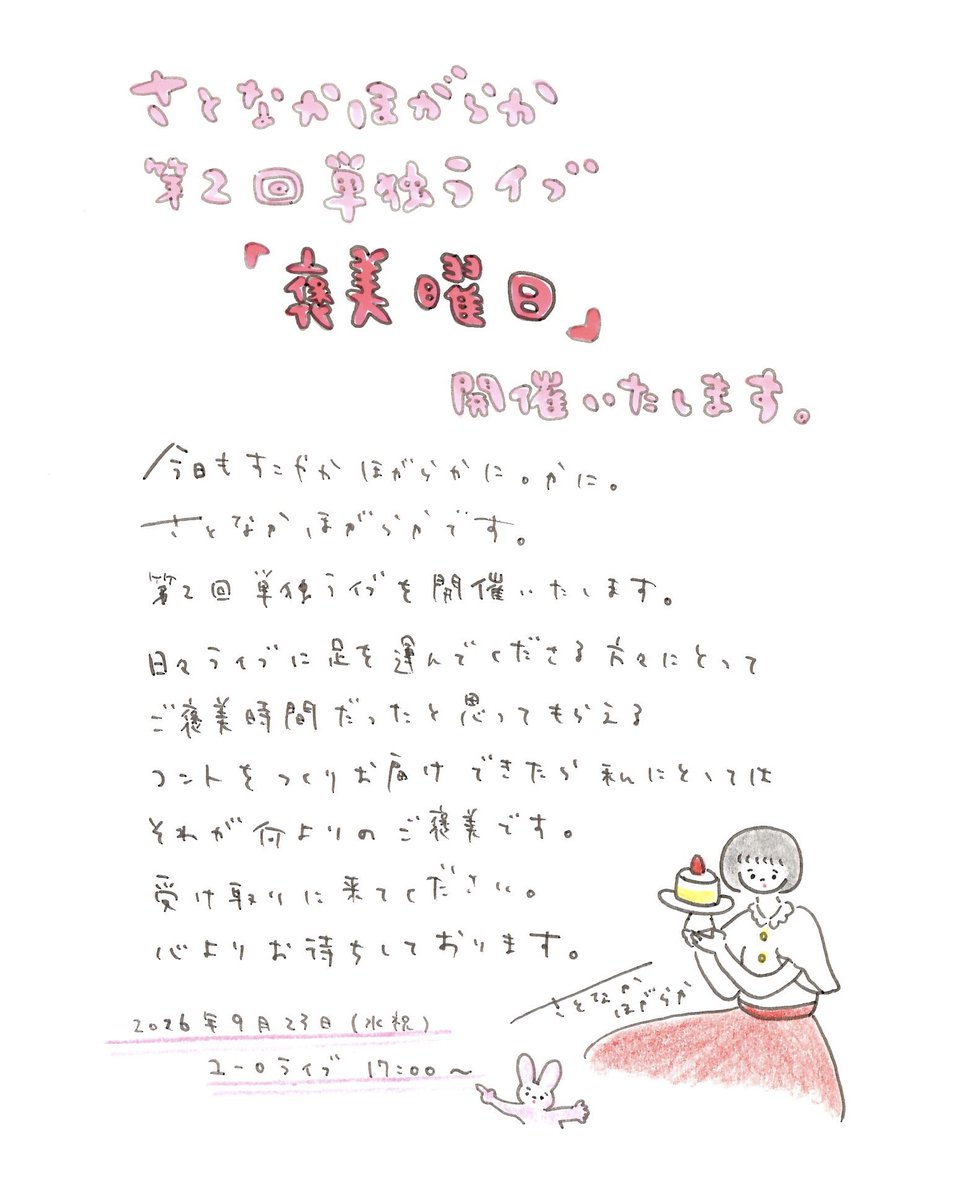 さとなかほがらか
第2回単独ライブ
『褒美曜日』
開催いたします。
今日もすこやかほがらかに。かに。
さとなかほがらかです。
第2回単独ライブを開催いたします。
日々ライブに足を運んでくださる方々にとって
ご褒美時間だったと思ってもらえる
コントをつくりお届けできたら私にとっては
それが何よりのご褒美です。
受け取りに来てください。
心よりお待ちしております。
さとなか
ほがらか
2026年9月23日(水祝)
ユーロライブ 17:00〜